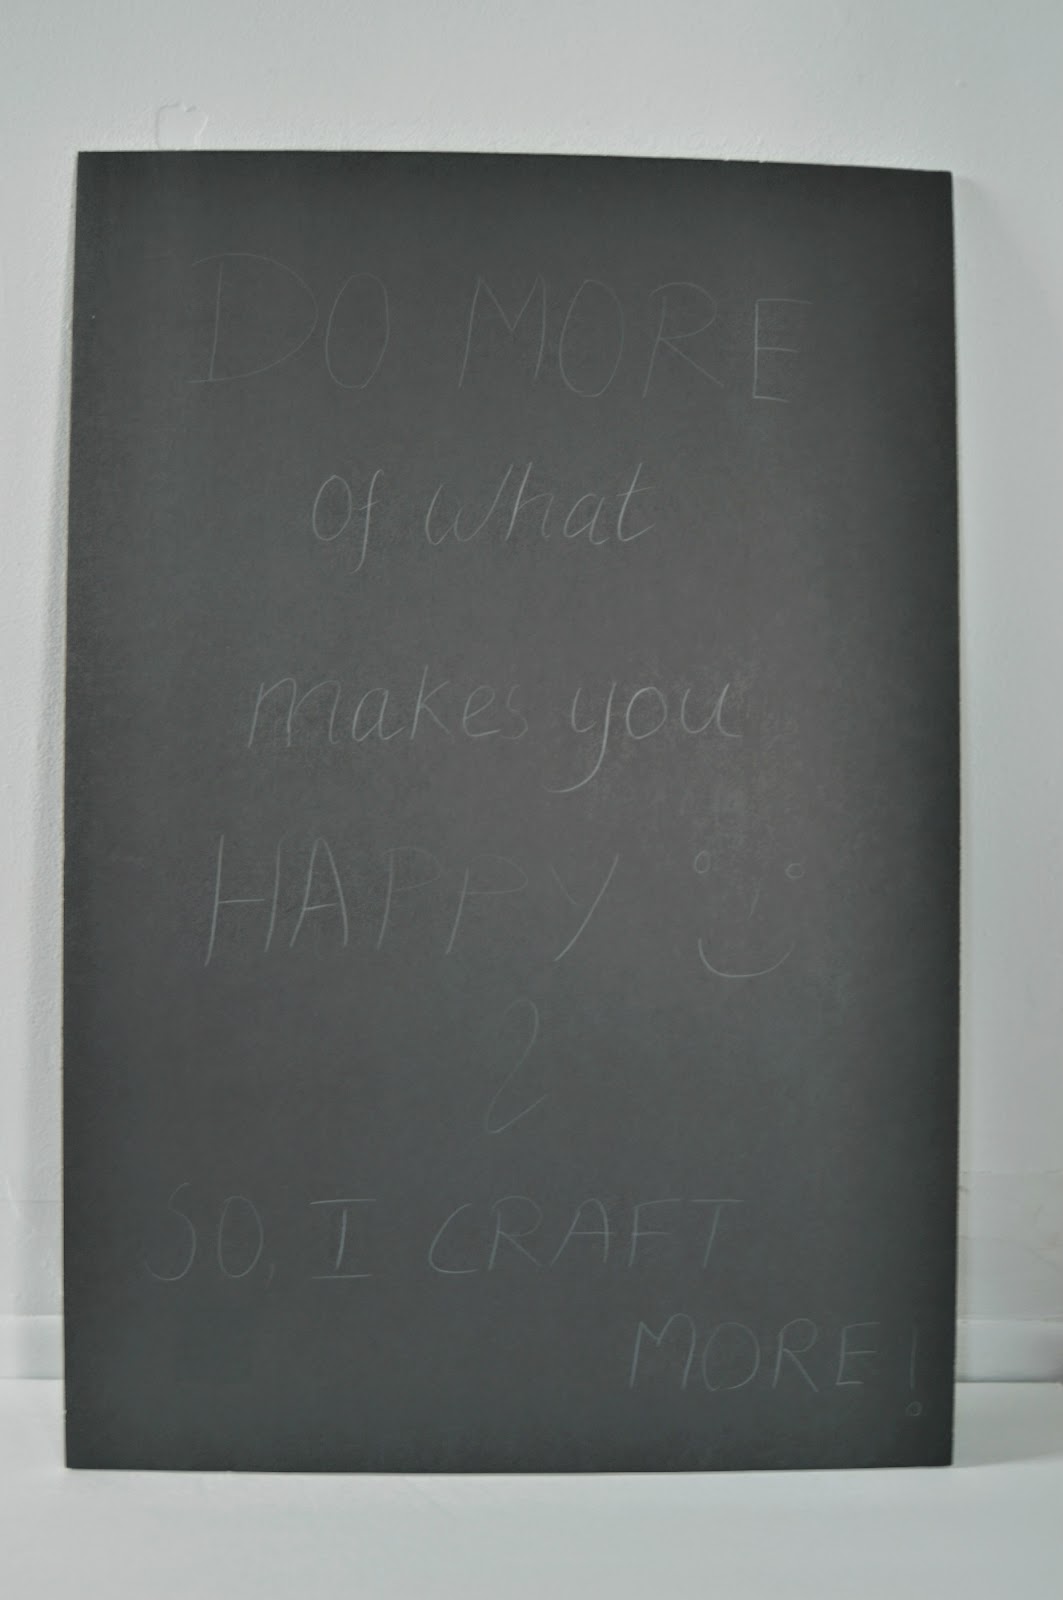 DO MORE
of what
makes you
HAPPY
2
SO, I CRAFT
MORE!